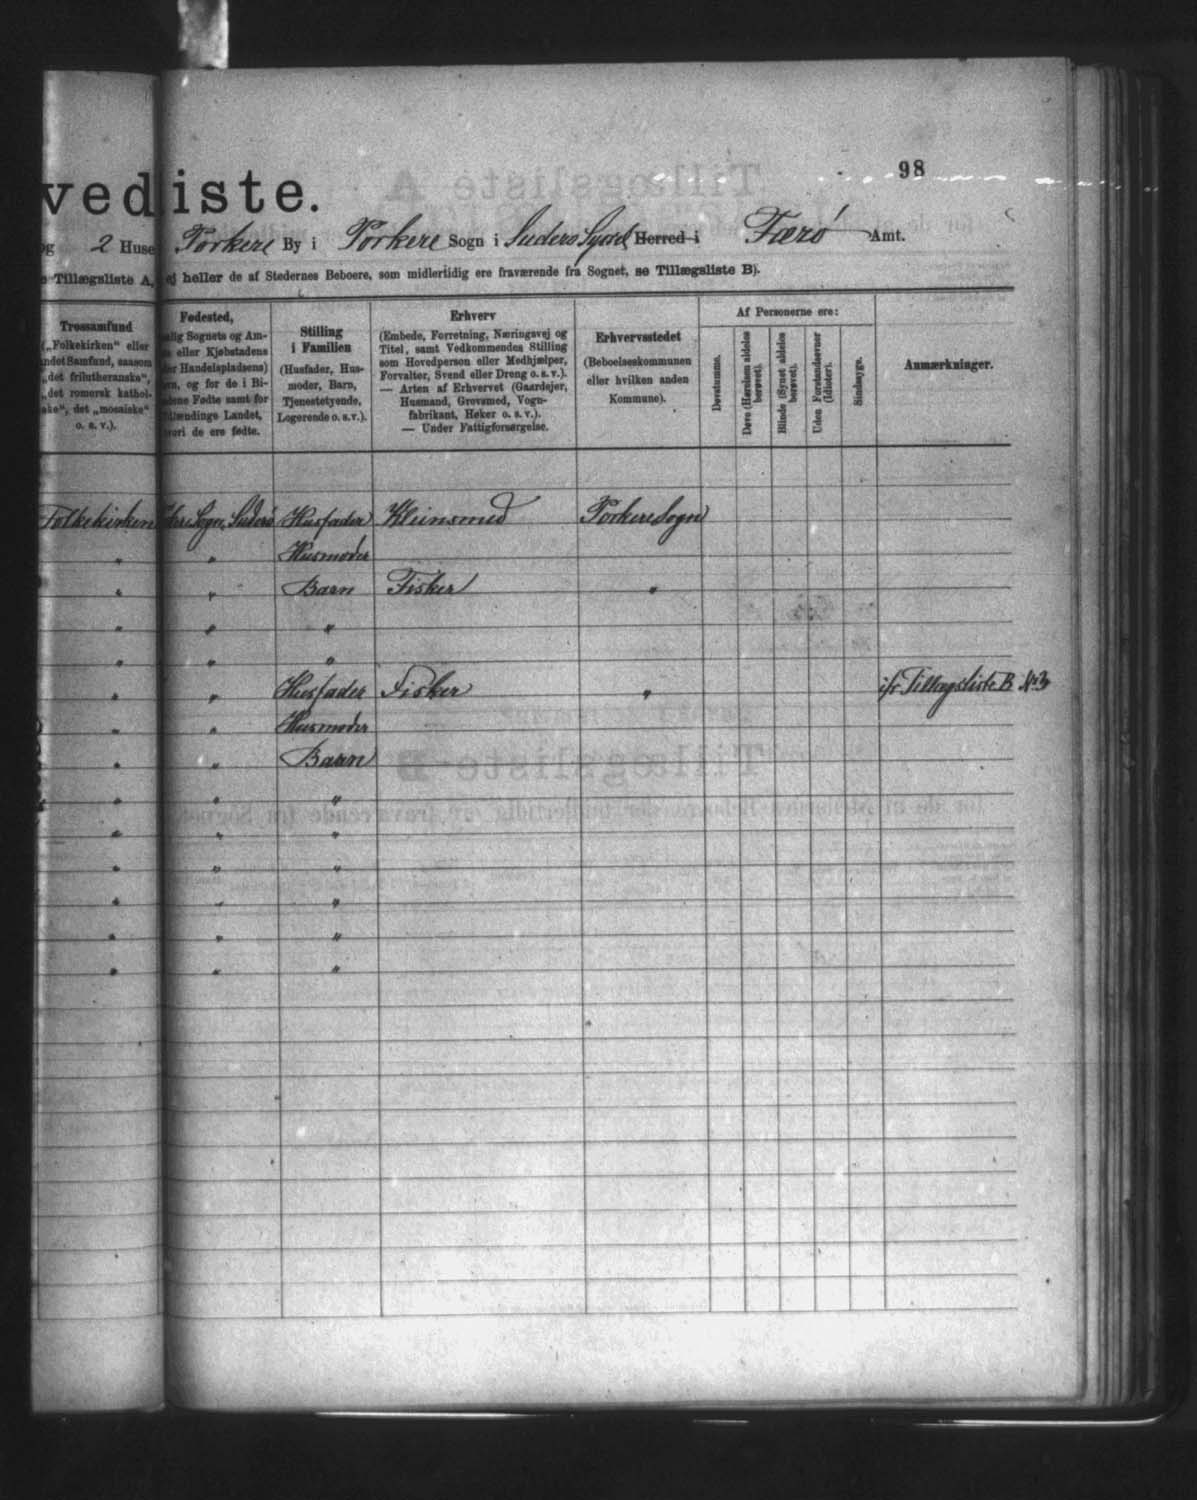 98
vedliste.
og 2 Huse Porkere By i Porkere Sogn i Suderø Syssel Herred i Færø Amt.
e Tillægsliste A, ej heller de af Stedernes Beboere, som midlertidig ere fraværende fra Sognet, se Tillægsliste B).
Trossamfund
(„Folkekirken“ eller
andet Samfund, saasom
„det frilutheranske“,
„det romersk kathol-
ske“, det „mosaiske“
o. s. v.).
Fødested,
nlig Sognets og Am-
s eller Kjøbstadens
ler Handelspladsens)
vn, og for de i Bi-
dene Fødte samt for
dlændinge Landet,
vori de ere fødte.
Stilling
i Familien
(Husfader, Hus-
moder, Barn,
Tjenestetyende,
Logerende o. s. v.).
Erhverv
(Embede, Forretning, Næringsvej og
Titel, samt Vedkommendes Stilling
som Hovedperson eller Medhjælper,
Forvalter, Svend eller Dreng o. s. v.).
— Arten af Erhvervet (Gaardejer,
Husmand, Grovsmed, Vogn-
fabrikant, Høker o. s. v.).
— Under Fattigforsørgelse.
Erhvervsstedet
(Beboelseskommunen
eller hvilken anden
Kommune).
Af Personerne ere:
Døvstumme.
Døve (Hørelsen aldeles
berøvet).
Blinde (Synet aldeles
berøvet).
Uden Forstandsevner
(Idioter).
Sindssyge.
Anmærkninger.
Folkekirken Sogn, Suderø Husfader Kleinsmed Porkere Sogn
" " Husmoder
" " Barn Fisker "
" " "
" " "
" " Husfader Fisker " jfr Tillægsliste B No 3
" " Husmoder
" " Barn
" " "
" " "
" " "
" " "
" " "
" " "